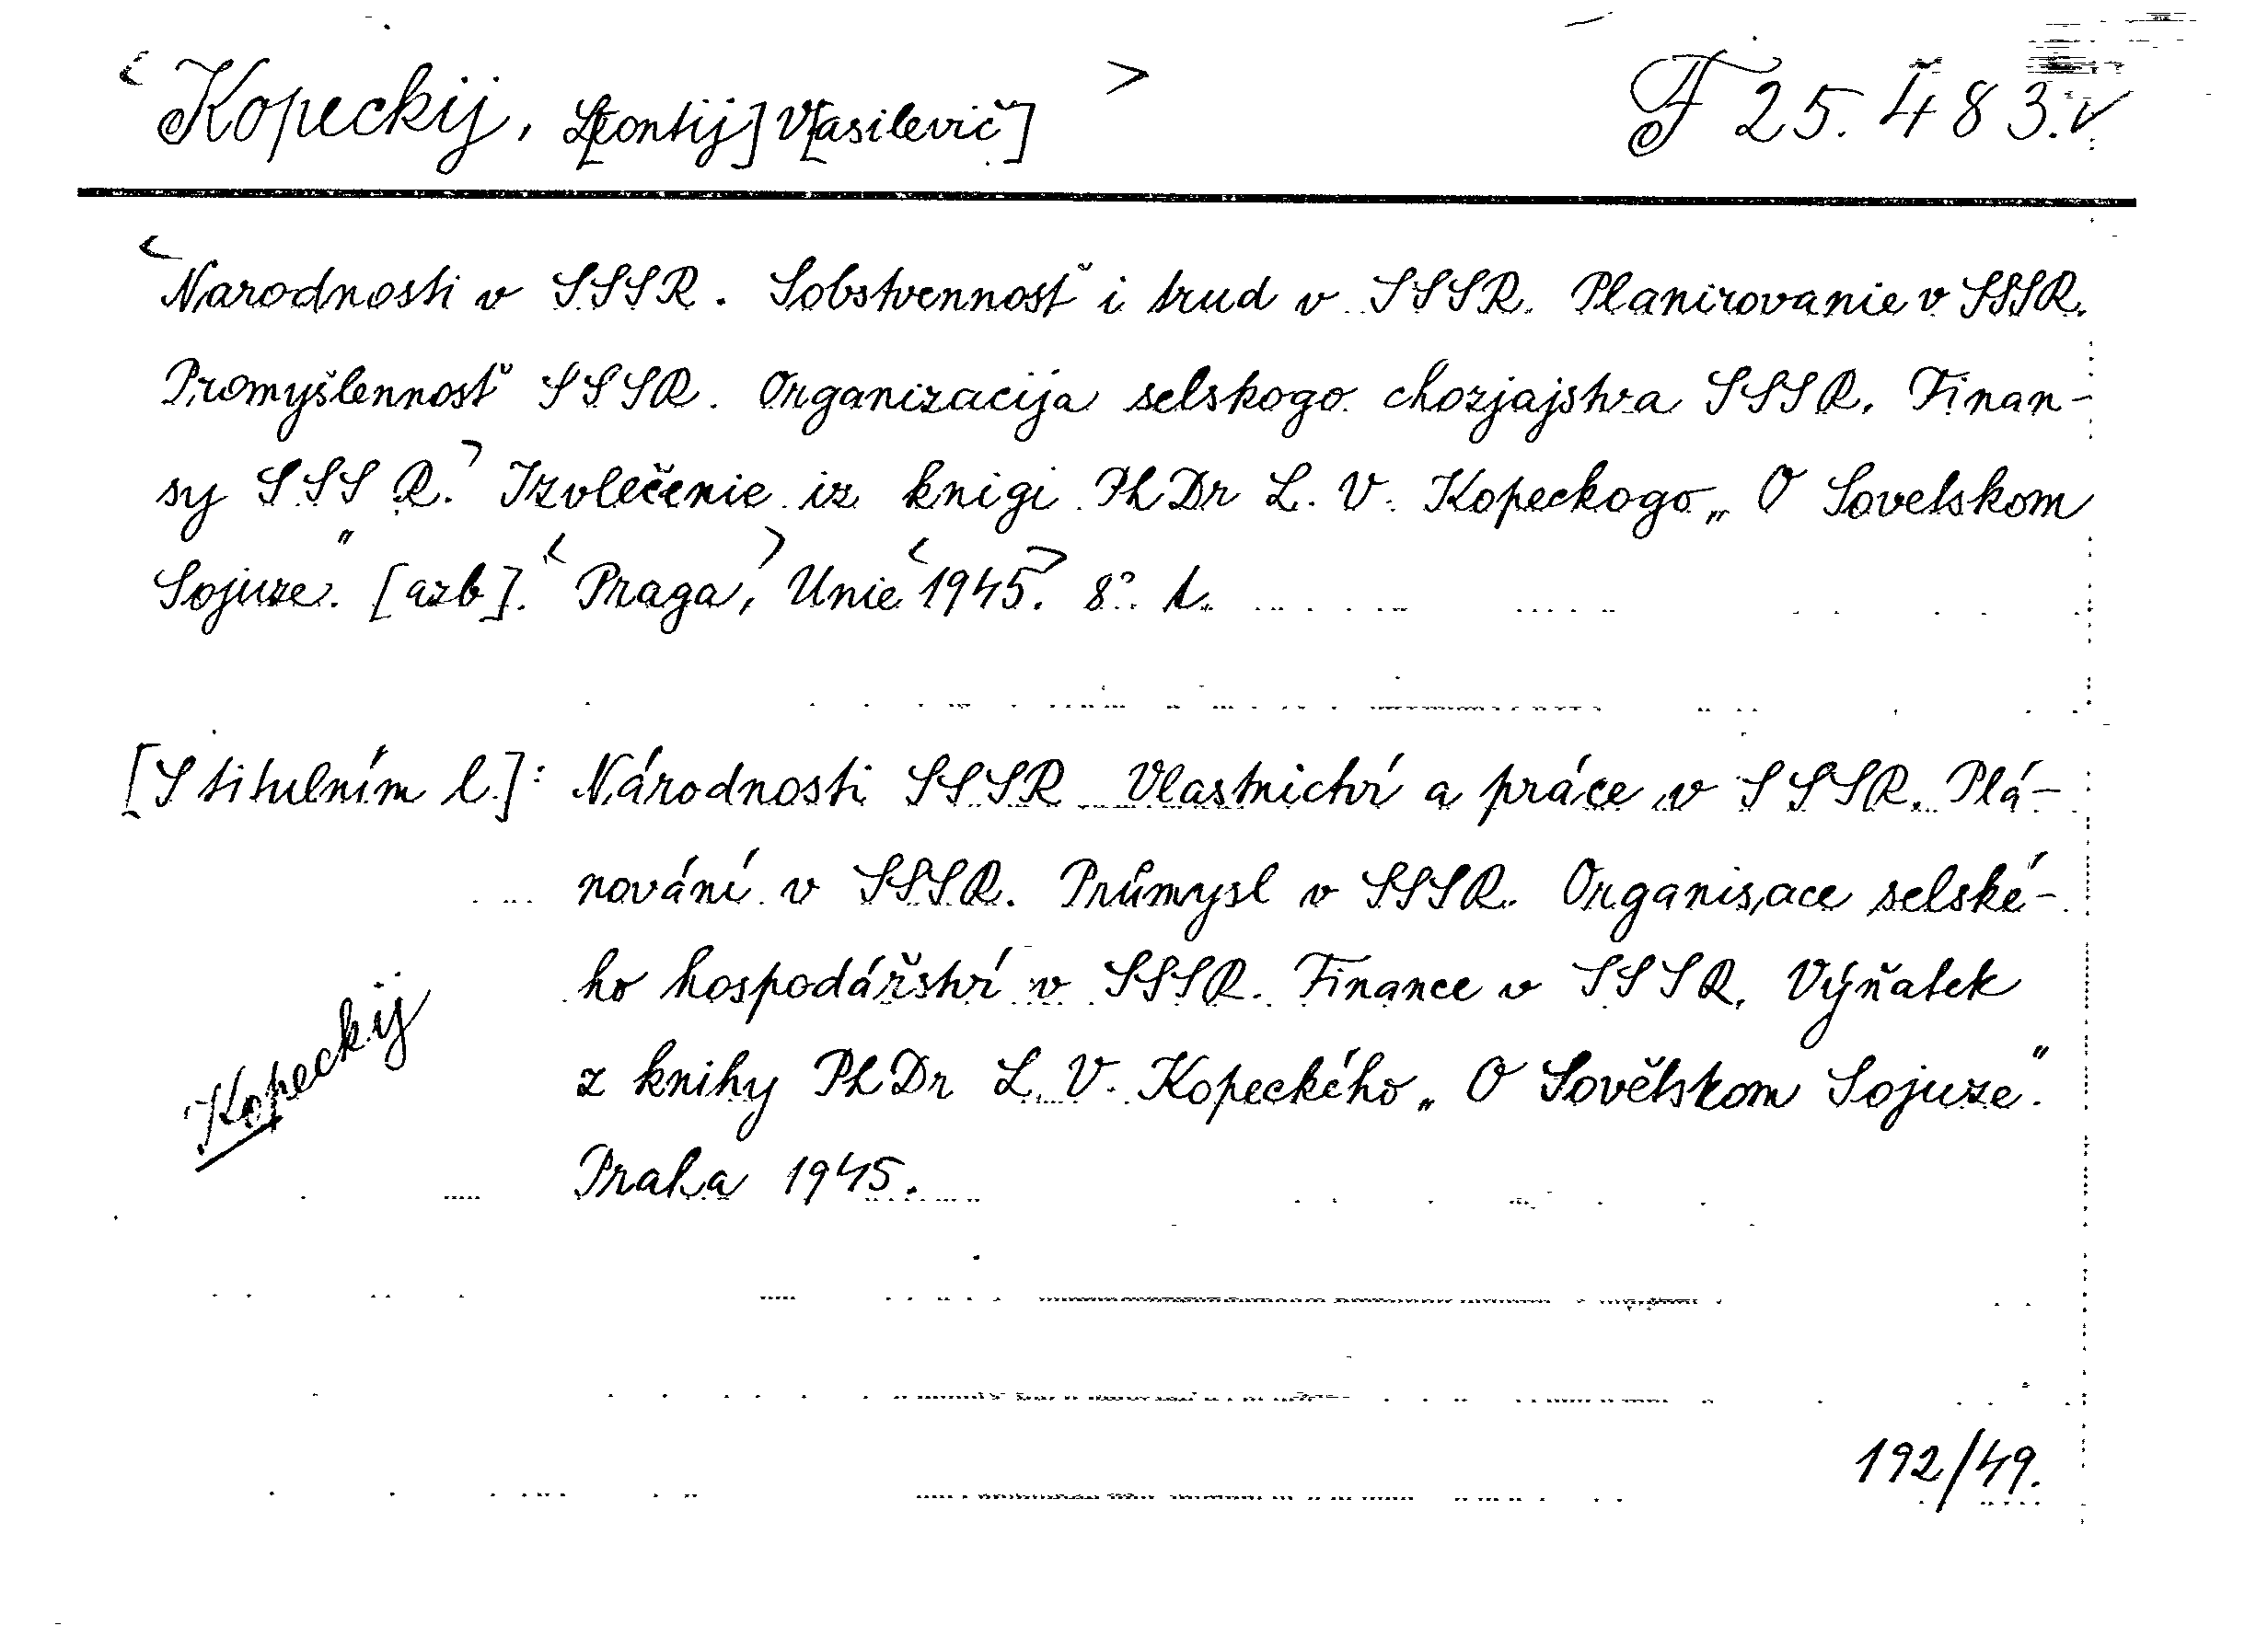 <Kopeckij, L[eontij] V[asilevič]> F 25.483.
<Narodnosti v SSSR. Sobstvennosť i trud v SSSR. Planirovanie v SSSR.
Promyšlennosť SSSR. Organizacija selskogo chozjajstva SSSR. Finan-
sy SSSR.> Izvlečenie iz knigi PhDr L. V. Kopeckogo „O Sovetskom
Sojuze." [azb]. <Praga,> Unie <1945.> 8°.
[S titulním l.]: Národnosti SSSR Vlastnictví a práce v SSSR. Plá-
nování v SSSR. Průmysl v SSSR. Organisace selské-
ho hospodářství v SSSR. Finance v SSSR. Výňatek
z knihy PhDr L. V. Kopeckého „O Sovětskom Sojuze".
Praha 1945.
Kopeckij
192/49.